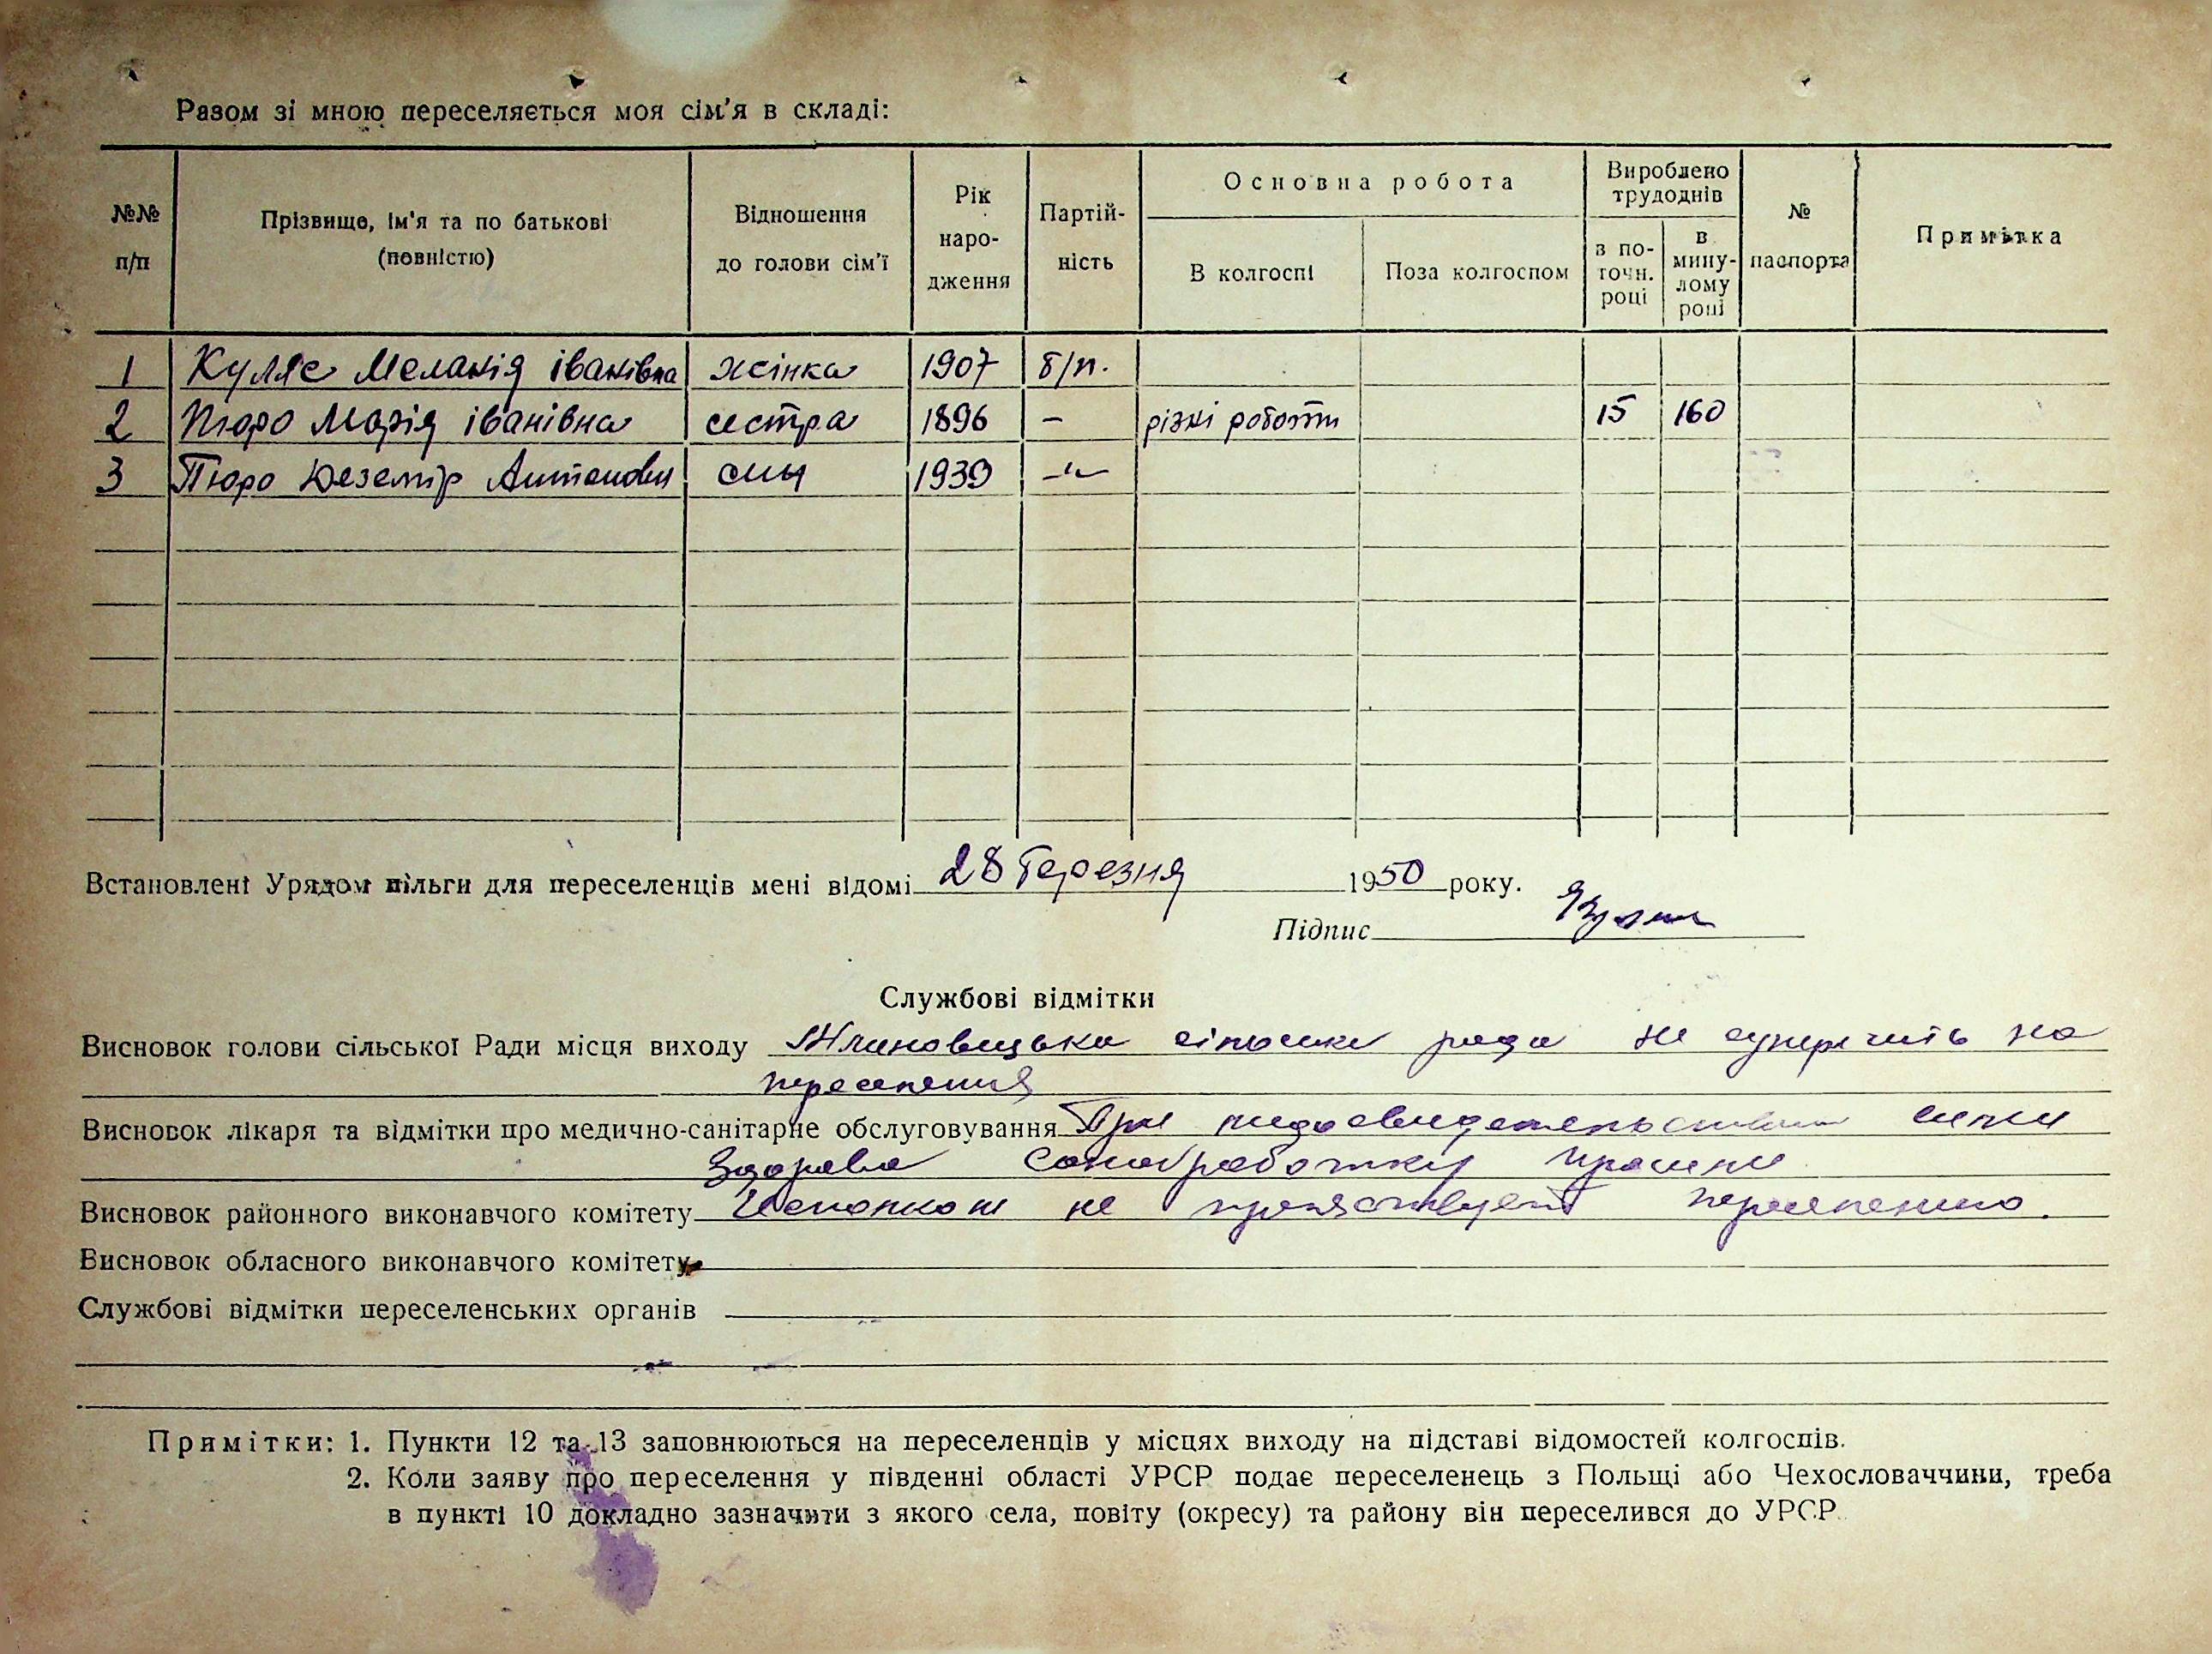 Разом зі мною переселяється моя сім'я в складі:
№№ п/п
Прізвище, ім'я та по батькові (повністю)
Відношення до голови сім'ї
Рік народження
Партійність
Основна робота
В колгоспі
Поза колгоспом
Вироблено трудоднів
в поточн. році
в минулому році
№ паспорта
Примітка
1 Меланія іванівна жінка 1907 б/п.
2 Пюро Марія іванівна сестра 1896 – різні роботи 15 160
3 Пюро син 1939 –"–
Встановлені Урядом пільги для переселенців мені відомі 28 березня 1950 року.
Підпис
Службові відмітки
Висновок голови сільської Ради місця виходу сільська рада не суперечить на
переселення
Висновок лікаря та відмітки про медично-санітарне обслуговування При
здорова санобработку прошли
Висновок районного виконавчого комітету Исполком не препятствует переселению.
Висновок обласного виконавчого комітету
Службові відмітки переселенських органів
Примітки: 1. Пункти 12 та 13 заповнюються на переселенців у місцях виходу на підставі відомостей колгоспів.
2. Коли заяву про переселення у південні області УРСР подає переселенець з Польщі або Чехословаччини, треба
в пункті 10 докладно зазначити з якого села, повіту (окресу) та району він переселився до УРСР.